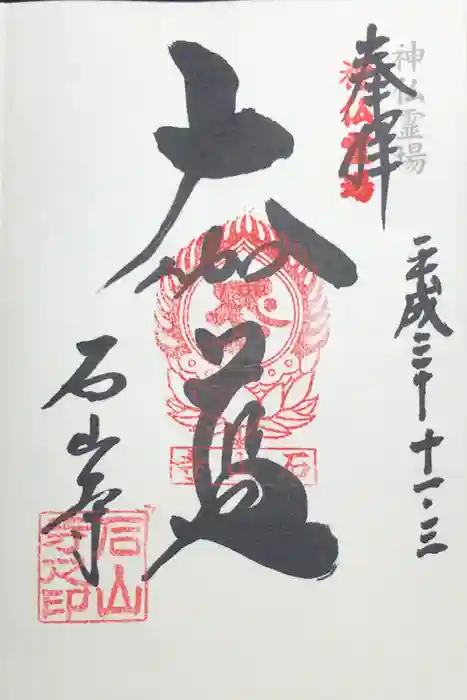 神仏霊場
奉拝
神仏霊場
平成三十 十一・三
大伽藍
石山寺
石山寺
石山寺之印